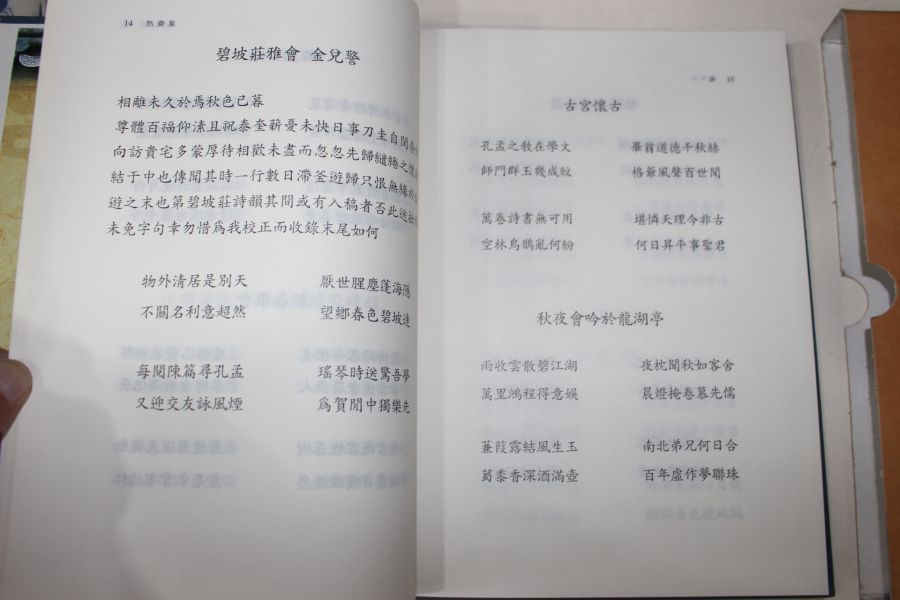 14 然齋集
碧坡莊雅會 金兌警
相離未久於焉秋色已暮
尊體百福仰溸且祝泰奎薪憂未快日事刀圭自閔
向訪貴宅多蒙厚待相歡未盡而忽忽先歸繾綣之
結于中也傳聞其時一行數日滯釜遊歸只恨無緣
遊之末也第碧坡莊詩韻其間或有入稿者否此
未免字句幸勿惜爲我校正而收錄末尾如何
物外清居是別天 厭世腥塵蓬海隱
不關名利意超然 望鄉春色碧坡連
每閱陳篇尋孔孟 瑤琴時送驚吾夢
又迎交友詠風煙 爲賀閒中獨樂先
15
古宮懷古
孔孟之敎在學文 畢翁道德千秋赫
師門群玉幾成紋 格爺風聲百世聞
萬卷詩書無可用 堪憐天理今非古
空林鳥鵲亂何紛 何日昇平事聖君
秋夜會吟於龍湖亭
雨收雲散碧江湖 夜枕聞秋如客舍
萬里鴻程得意娛 晨燈掩卷慕先儒
蒹葭露結風生玉 南北弟兄何日合
蔔黍香深酒滿壺 百年虛作夢聯珠